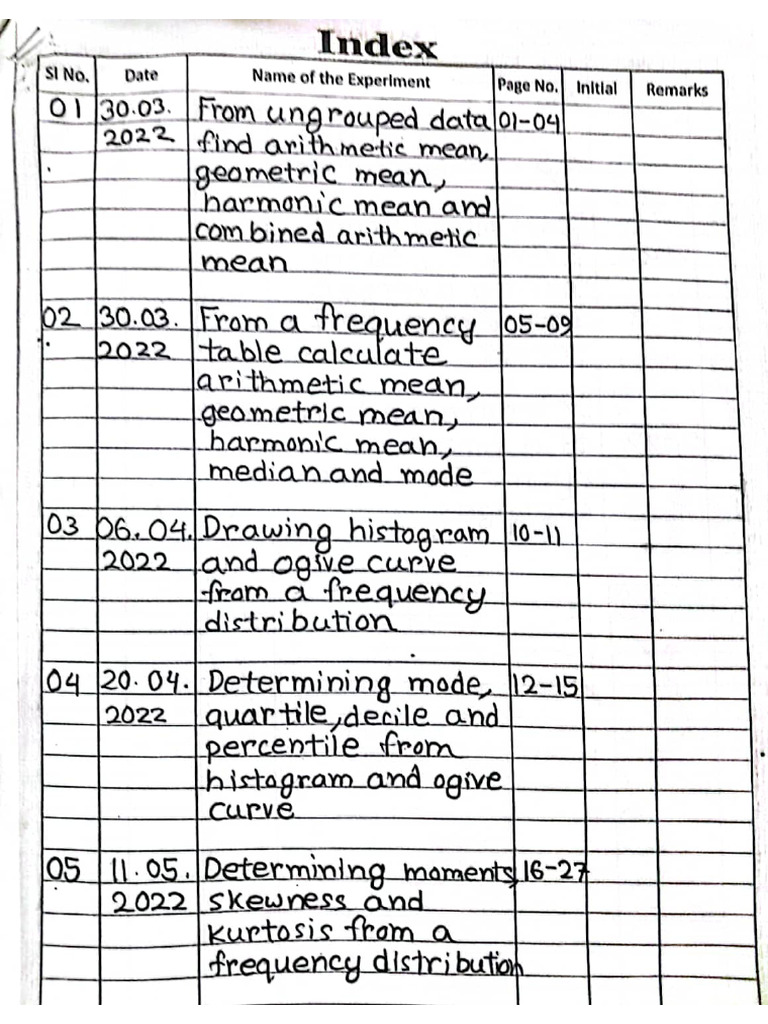 Index
Sl No. Date Name of the Experiment Page No. Initial Remarks
01 30.03. From ungrouped data 01-04
2022 find arithmetic mean,
geometric mean,
harmonic mean and
combined arithmetic
mean
02 30.03. From a frequency 05-09
2022 table calculate
arithmetic mean,
geometric mean,
harmonic mean,
median and mode
03 06.04. Drawing histogram 10-11
2022 and ogive curve
from a frequency
distribution
04 20.04. Determining mode, 12-15
2022 quartile, decile and
percentile from
histogram and ogive
curve
05 11.05. Determining moments, 16-27
2022 skewness and
kurtosis from a
frequency distribution